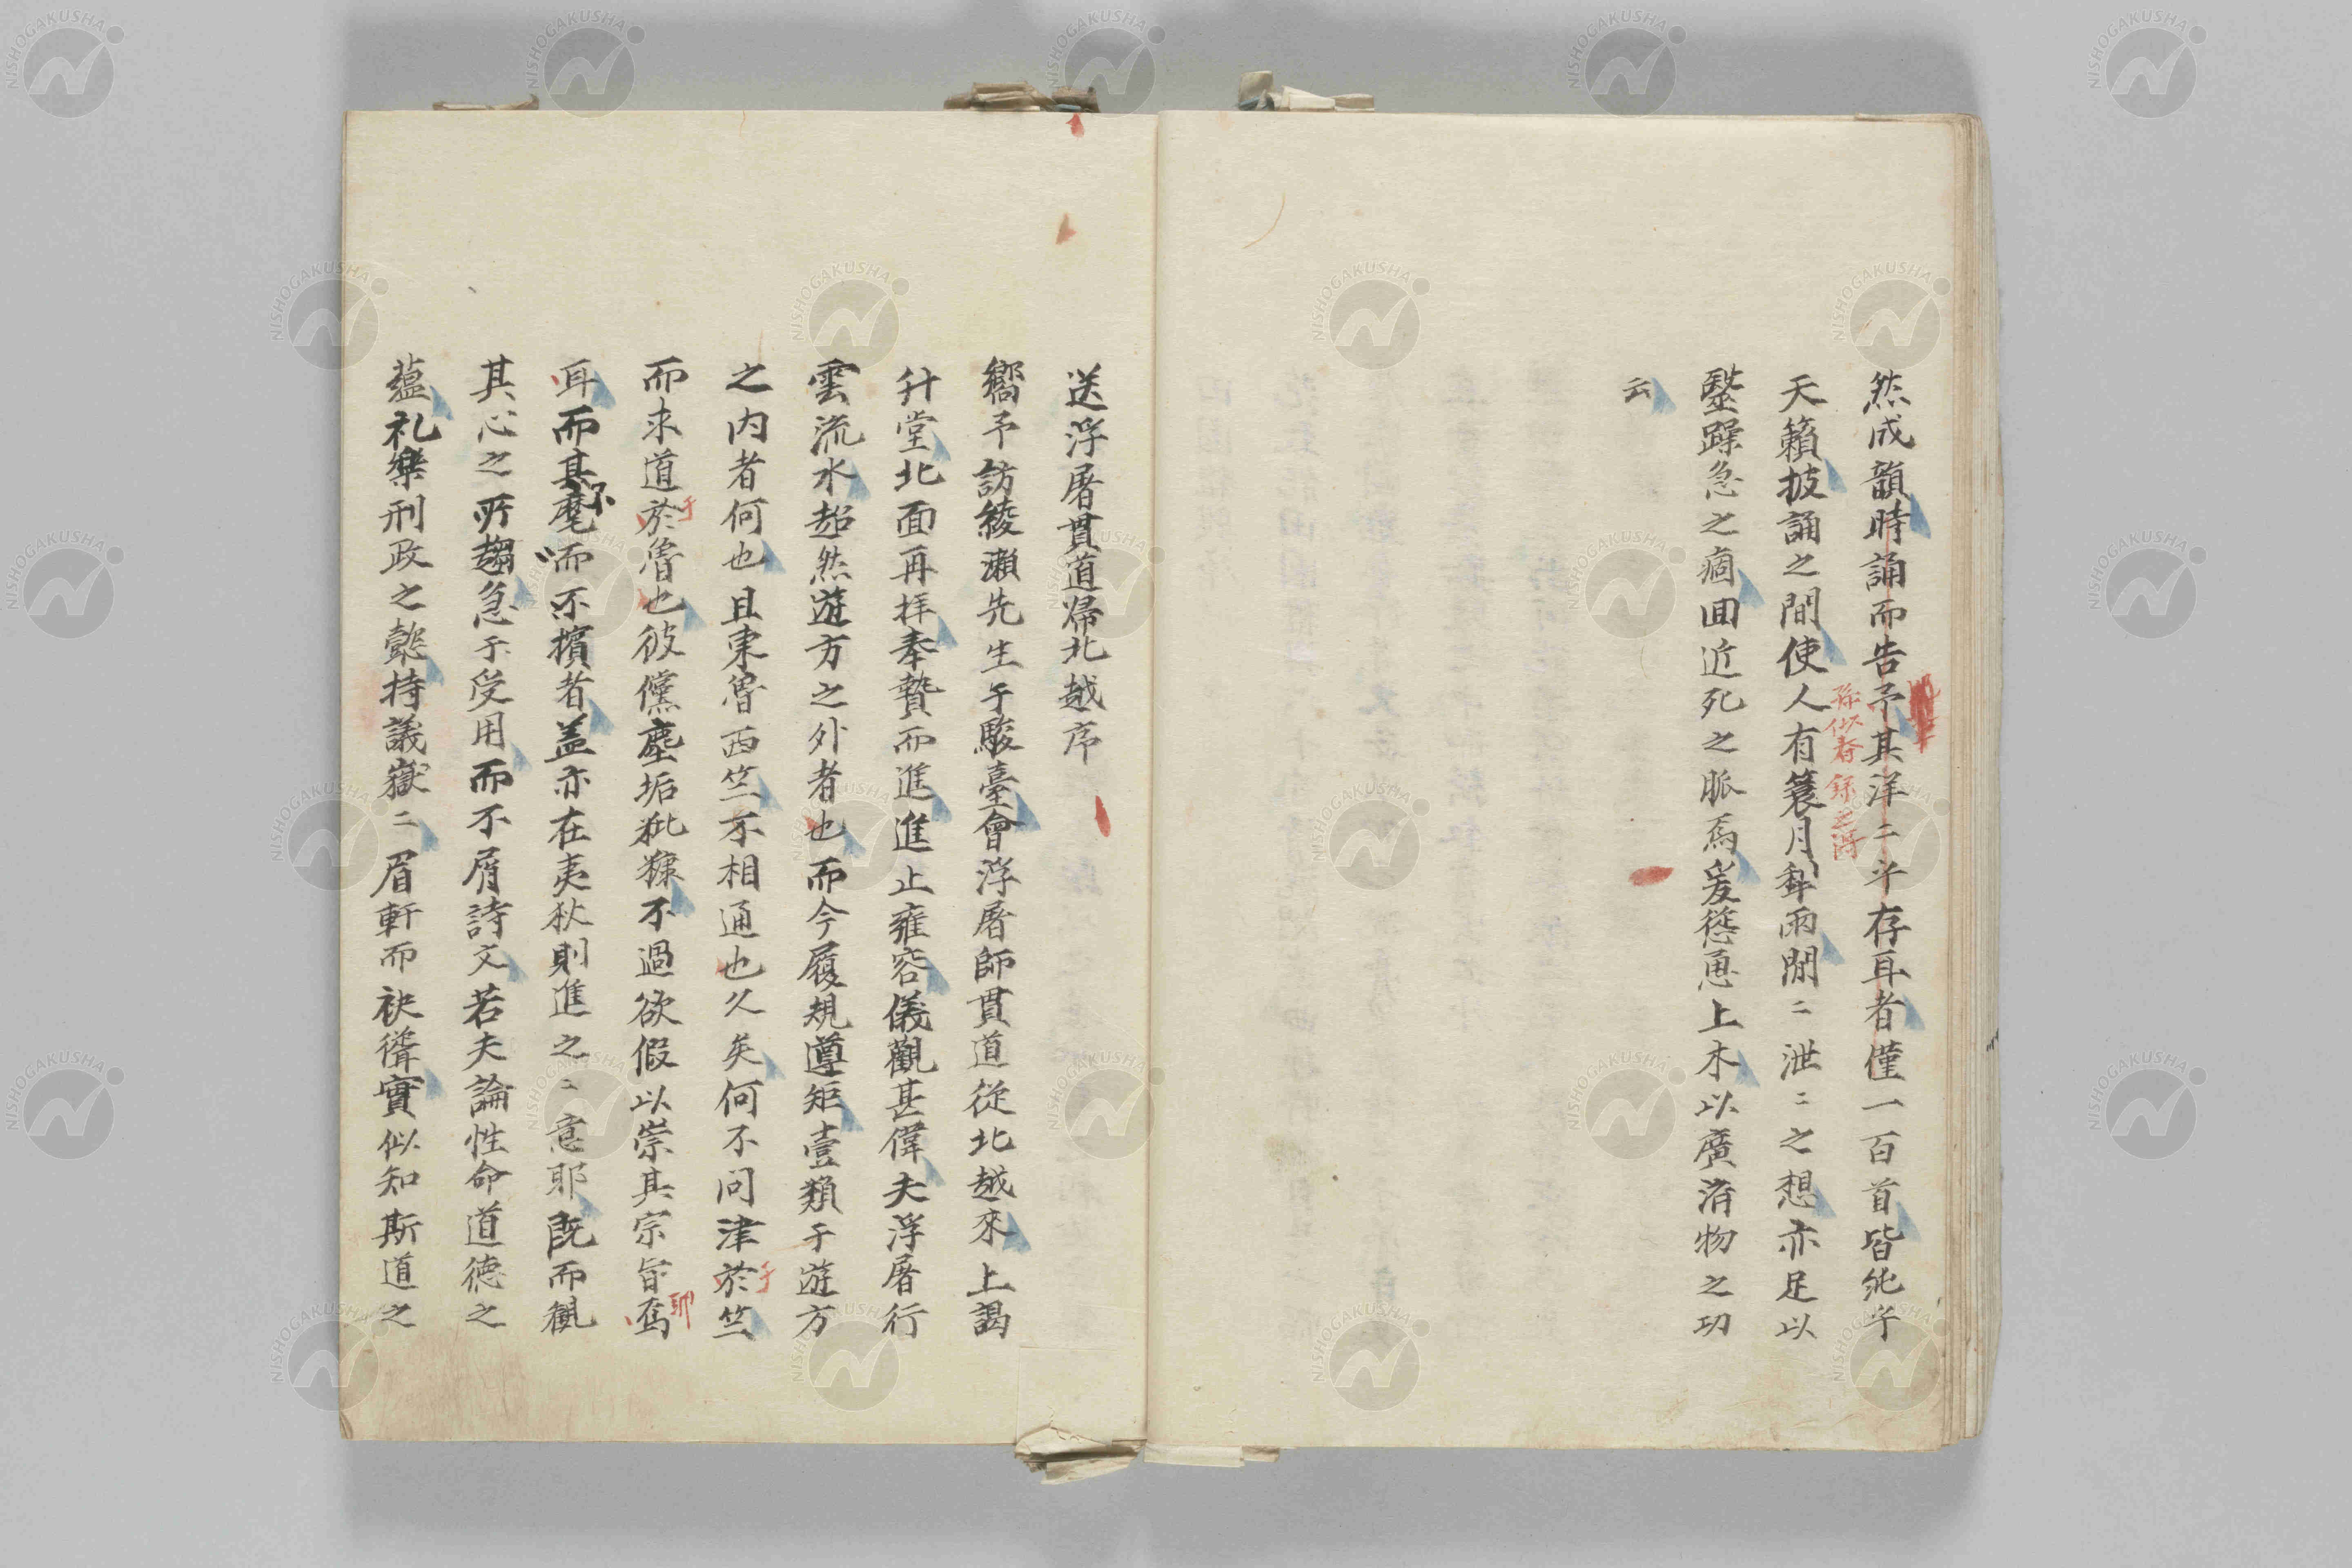 然成韻時誦而告予其洋二乎存耳者僅一百首皆純乎
天籟披誦之間使人有蓑月犂雨閒二泄二之想亦足以
毉躁急之痼回近死之脈焉爰慫恿上木以廣濟物之功
云
送浮屠貫道帰北越序
嚮予訪綾瀬先生于駿臺會浮屠師貫道從北越來上謁
升堂北面再拝奉贄而進進止雍容儀觀甚偉夫浮屠行
雲流水超然遊方之外者也而今履規遵矩壹類于遊方
之内者何也且東魯西竺不相通也久矣何不問津於竺
于
而求道於魯也彼儻塵垢粃糠不過欲假以崇其宗旨焉
于
耳而其麾而不擯者盖亦在夷狄則進之二意耶既而観
其心之所趨急于受用而不屑詩文若夫論性命道德之
蘊礼樂刑政之懿持議嶽二眉軒而袂聳實似知斯道之
NISHOGAKUSHA